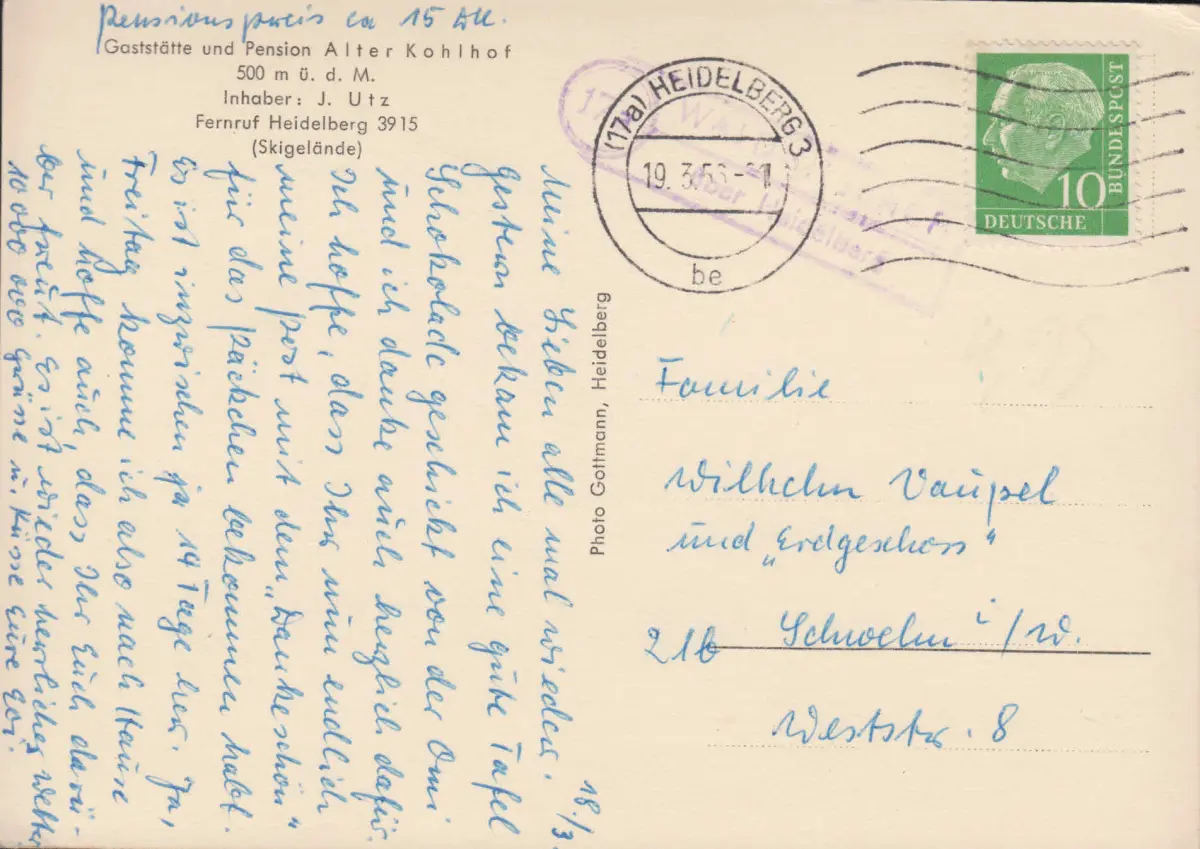 Pensionspreis ca 15 DM.
Gaststätte und Pension Alter Kohlhof
500 m ü. d. M.
Inhaber: J. Utz
Fernruf Heidelberg 3915
(Skigelände)
18./3.
Meine Lieben alle mal wieder.
Gestern bekam ich eine gute Tafel
Schokolade geschickt von der Omi
und ich danke auch herzlich dafür.
Ich hoffe, dass Ihr nun endlich
meine Post mit dem „Dankeschön"
für das Päckchen bekommen habt.
Es ist inzwischen ja 14 Tage her. Ja,
Freitag komme ich also nach Hause
und hoffe auch, dass Ihr Euch darü-
ber freut. Es ist wieder herrliches Wetter
10 000 000 Grüsse u. Küsse Eure Evi.
Photo Gottmann, Heidelberg
(17a) HEIDELBERG 3
19. 3.
be
über Heidelberg
DEUTSCHE
BUNDESPOST
10
Familie
Wilhelm Vaupel
und „Erdgeschoss"
21b Schwelm i/W.
Weststr. 8